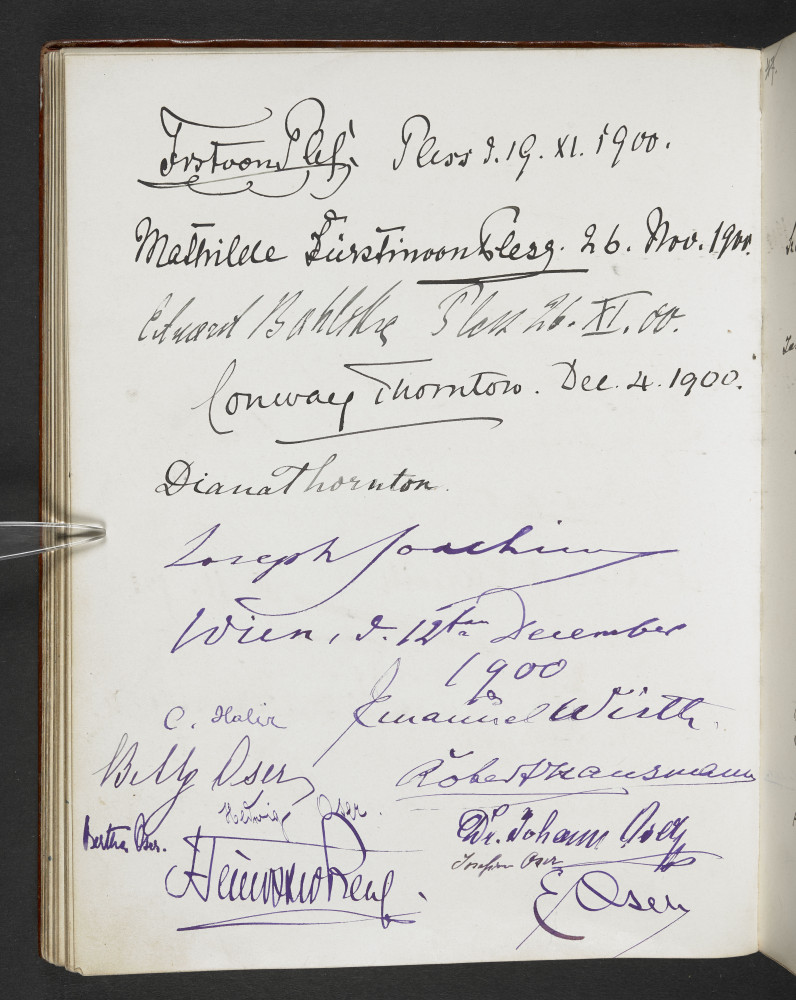 Fürst von Pless. Pless d. 19. XI. 1900.
Mathilde Fürstin von Pless. 26. Nov. 1900.
Eduard Pless 26. XI. 00.
Conway Thornton. Dec. 4. 1900.
Diana Thornton.
Joseph Joachim
Wien, d. 12ten December
1900
C. Halir Emanuel Wirth.
Betty Oser Robert Hausmann
Hedwig Oser.
Bertha Oser. Dr. Johann Oser
Josefine Oser
E Oser